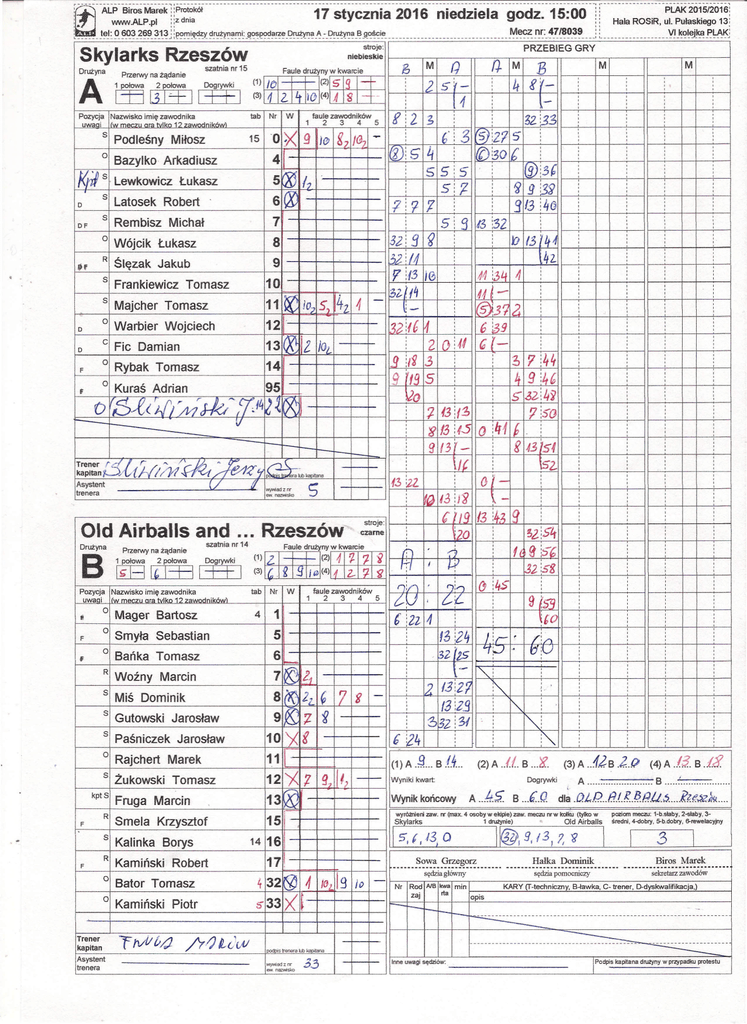 ALP Biros Marek
www.ALP.pl
tel: 0 603 269 313
Protokół
z dnia
17 stycznia 2016 niedziela godz. 15:00
PLAK 2015/2016
Hala ROSiR, ul. Pułaskiego 13
VI kolejka PLAK
pomiędzy drużynami: gospodarze Drużyna A - Drużyna B goście
Mecz nr: 47/8039
Skylarks Rzeszów
stroje:
niebieskie
Drużyna
A
Przerwy na żądanie
szatnia nr 15
1 połowa 2 połowa Dogrywki
3
Faule drużyny w kwarcie
(1) 10 (2) 5 9
(3) 1 2 4 10 (4) 1 8
Pozycja
uwagi
Nazwisko imię zawodnika
(w meczu gra tylko 12 zawodników)
tab Nr W
faule zawodników
1 2 3 4 5
S Podleśny Miłosz 15 0 X 9 10 8₂ 10₂ -
O Bazylko Arkadiusz 4
Kpt S Lewkowicz Łukasz 5 X 1₂
D S Latosek Robert 6 X
D F S Rembisz Michał 7
O Wójcik Łukasz 8
R Ślęzak Jakub 9
S Frankiewicz Tomasz 10
S Majcher Tomasz 11 X 10₂ 5₂ 4₂ 1 -
D O Warbier Wojciech 12
D C Fic Damian 13 X 2 10₂
F O Rybak Tomasz 14
F O Kuraś Adrian 95
O Śliwiński J. 14 22 X
Trener
kapitan Śliwiński Jerzy
podpis trenera lub kapitana
Asystent
trenera
wywiad z nr
ew. nazwisko 5
Old Airballs and ... Rzeszów
stroje:
czarne
Drużyna
B
Przerwy na żądanie
szatnia nr 14
1 połowa 2 połowa Dogrywki
5 6
Faule drużyny w kwarcie
(1) 2 (2) 1 7 7 8
(3) 6 8 9 10 (4) 1 2 7 8
Pozycja
uwagi
Nazwisko imię zawodnika
(w meczu gra tylko 12 zawodników)
tab Nr W
faule zawodników
1 2 3 4 5
O Mager Bartosz 4 1
F O Smyła Sebastian 5
O Bańka Tomasz 6
R Woźny Marcin 7 X 2₁
S Miś Dominik 8 X 2₂ 6 7 8 -
S Gutowski Jarosław 9 X 7 8
S Paśniczek Jarosław 10 X 8
O Rajchert Marek 11
S Żukowski Tomasz 12 X 7 9₂ 1₂
kpt S Fruga Marcin 13 X
F R Smela Krzysztof 15
S Kalinka Borys 14 16
R Kamiński Robert 17
O Bator Tomasz 4 32 X 1 10₂ 9 10 -
O Kamiński Piotr 5 33 X
Trener
kapitan FRUGA MARCIN
podpis trenera lub kapitana
Asystent
trenera
wywiad z nr
ew. nazwisko 33
PRZEBIEG GRY
B M A A M B M M
2 5 - 4 8 -
1 -
8 2 3 32 33
6 3 5 27 5
8 5 4 6 30 6
5 5 5 9 36
5 7 8 9 38
7 7 7 9 13 40
5 9 13 32
32 9 8 10 13 41
32 11 42
7 13 10 11 34 1
32 14 11 -
- 5 37 2
32 16 1 6 39
2 0 11 6 -
9 18 3 3 7 44
9 19 5 4 9 46
20 5 32 48
7 13 13 7 50
8 13 15 0 41 6
9 13 - 8 13 51
16 52
13 22 0 -
10 13 18 -
6 19 13 43 9
20 32 54
A : B 10 9 56
32 58
20 : 22 0 45
9 59
6 22 1 60
13 24 45 : 60
32 25
-
2 13 27
13 29
3 32 31
6 24
(1) A 9 B 14 (2) A 11 B 8 (3) A 12 B 20 (4) A 13 B 18
Wyniki kwart: Dogrywki A B
Wynik końcowy A 45 B 60 dla OLD AIRBALLS Rzeszów
wyróżnieni zaw. nr (max. 4 osoby w ekipie) zaw. meczu nr w kółku (tylko w 1 drużynie)
Skylarks Old Airballs
5, 6, 13, 0 32, 9, 13, 7, 8
poziom meczu: 1-b.słaby, 2-słaby, 3-średni, 4-dobry, 5-b.dobry, 6-rewelacyjny
3
Sowa Grzegorz Hałka Dominik Biros Marek
sędzia główny sędzia pomocniczy sekretarz zawodów
Nr Rodzaj A/B kwarta min
KARY (T-techniczny, B-ławka, C- trener, D-dyskwalifikacja,)
opis
Inne uwagi sędziów:
Podpis kapitana drużyny w przypadku protestu